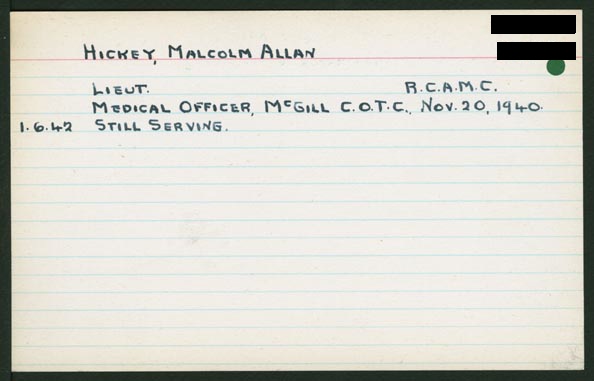 HICKEY, MALCOLM ALLAN
LIEUT. R.C.A.M.C.
MEDICAL OFFICER, McGILL C.O.T.C., NOV. 20, 1940.
1.6.42 STILL SERVING.